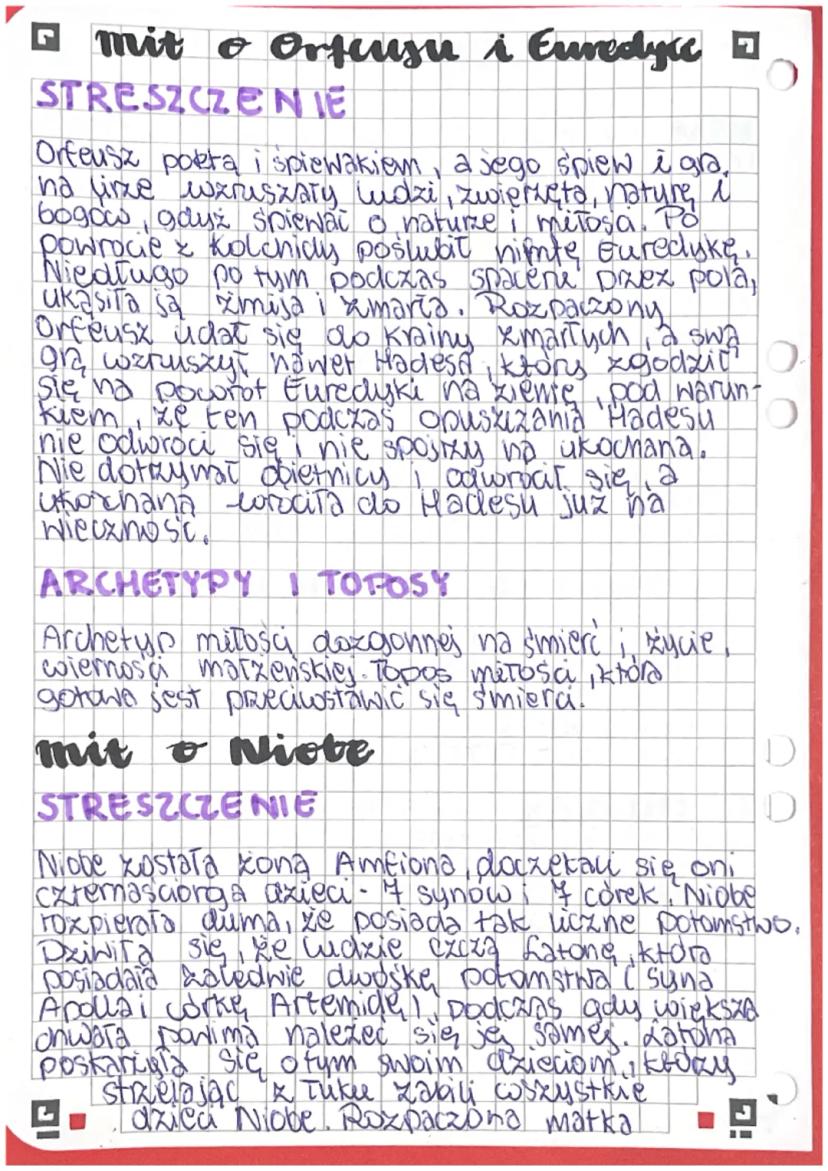 mit o Orfeuszu i Euredyce
STRESZCZENIE
Orfeusz poetą i śpiewakiem, a jego śpiew i gra
na lirze wzruszały ludzi, zwierzęta, naturę i
bogów, gdyż śpiewał o naturze i miłości. Po
powrocie z Kolchidy poślubił nimfę Euredykę.
Niedługo po tym podczas spaceru przez pola,
ukąsiła ją żmija i zmarła. Rozpaczony
Orfeusz udał się do krainy zmarłych, a swą
grą wzruszył nawet Hadesa, który zgodził
się na powrót Euredyki na ziemię, pod warun-
kiem, że ten podczas opuszczania Hadesu
nie odwróci się i nie spojrzy na ukochaną.
Nie dotrzymał obietnicy i odwrócił się, a
ukochana wróciła do Hadesu już na
wieczność.
ARCHETYPY I TOPOSY
Archetyp miłości dozgonnej na śmierć i życie,
wierności małżeńskiej. Topos miłości, która
gotowa jest przeciwstawić się śmierci.
mit o Niobe
STRESZCZENIE
Niobe została żoną Amfiona, doczekali się oni
czternaściorga dzieci - 7 synów i 7 córek. Niobe
rozpierała duma, że posiada tak liczne potomstwo.
Dziwiła się, że ludzie czczą Latonę, która
posiadała zaledwie dwójkę potomstwa (syna
Apolla i córkę Artemidę), podczas gdy większa
chwała powinna należeć się jej samej. Latona
poskarżyła się o tym swoim dzieciom, którzy
strzelając z łuku zabili wszystkie
dzieci Niobe. Rozpaczona matka